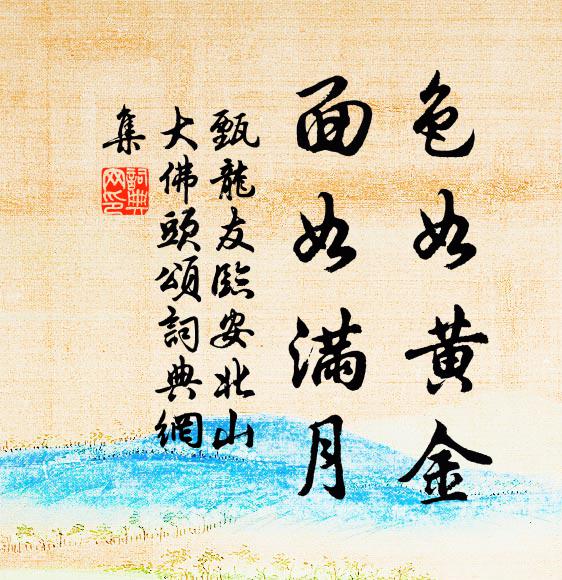 色如黄金
面如满月
甄龍友臨安北山
大佛頭頌詞典網
集
詞典
网印